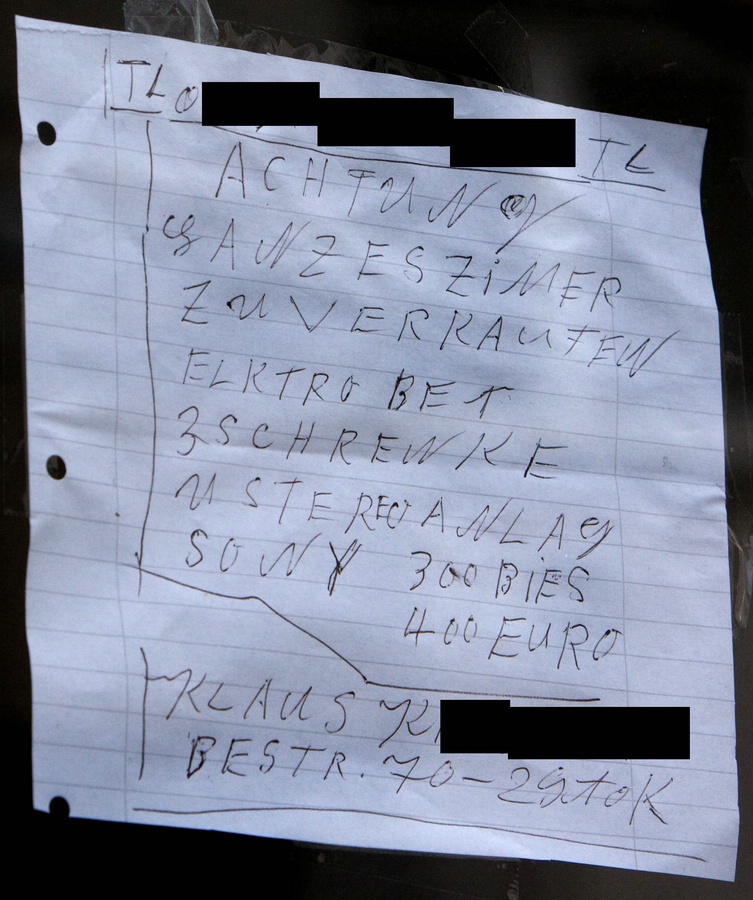 TLO TL
ACHTUNG
GANZESZiMER
ZUVERKAUFEN
ELKTRO BET
3SCHRENKE
U STEREOANLAG
SONY 300BIES
400EURO
KLAUS K
BESTR. 70-2StoK